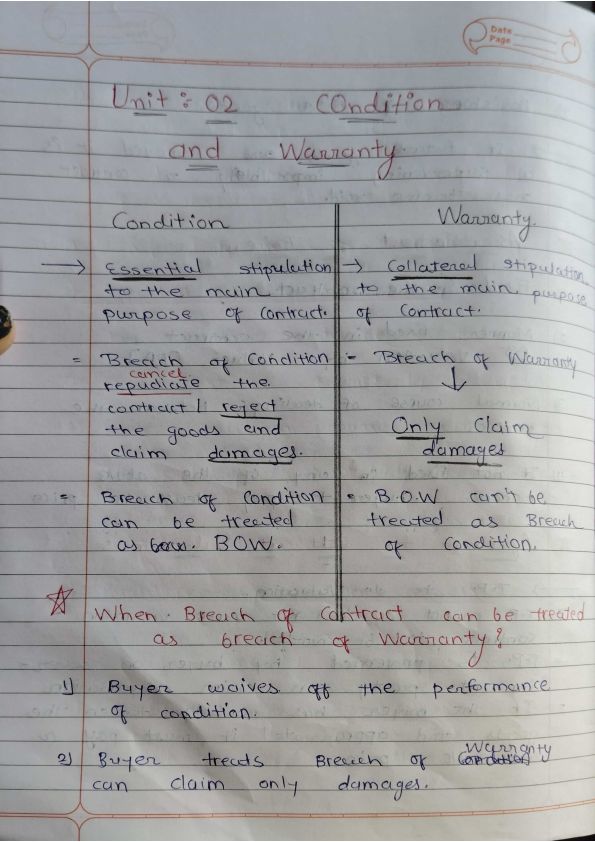 Date
Page
Unit : 02 Condition
and Warranty
Condition
→ Essential stipulation
to the main
purpose of contract.
= Breach of Condition
cancel
repudiate the
contract / reject
the goods and
claim damages.
= Breach of Condition
can be treated
as BOW.
Warranty.
→ Collateral stipulation
to the main purpose
of contract.
= Breach of Warranty
↓
Only claim
damages
= B.O.W can't be
treated as Breach
of condition.
☆ When Breach of Contract can be treated
as breach of Warranty?
1) Buyer waives off the performance
of condition.
2) Buyer treats Breach of Warranty
can claim only damages.